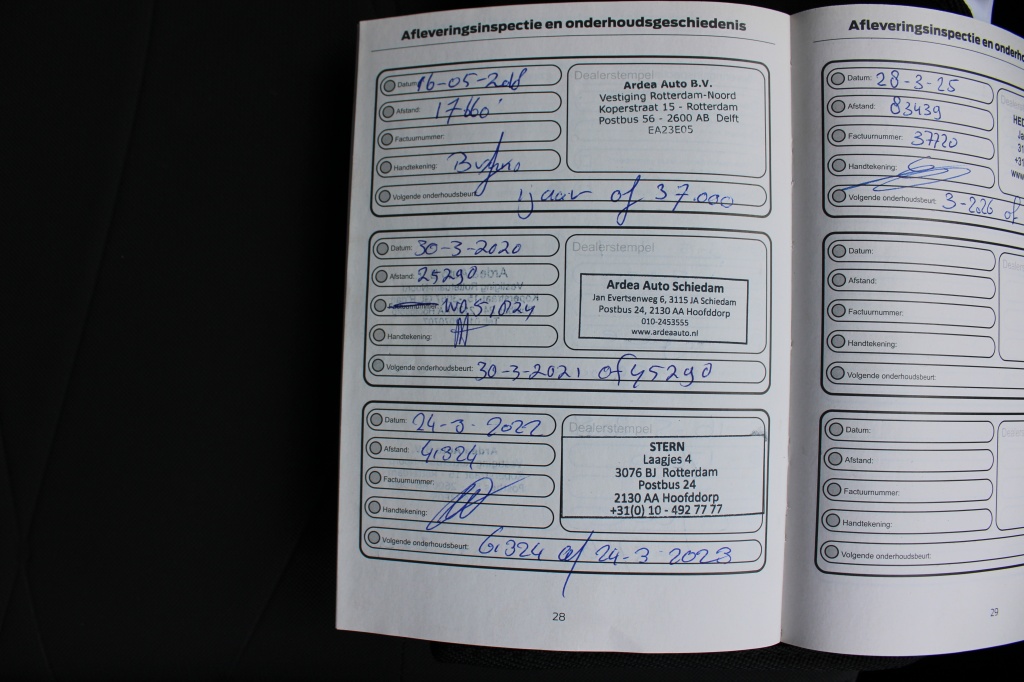 Afleveringsinspectie en onderhoudsgeschiedenis
Datum: 16-05-2018
Afstand: 17160
Factuurnummer:
Handtekening:
Volgende onderhoudsbeurt: 1 jaar of 37.000
Dealerstempel
Ardea Auto B.V.
Vestiging Rotterdam-Noord
Koperstraat 15 - Rotterdam
Postbus 56 - 2600 AB Delft
EA23E05
Datum: 30-3-2020
Afstand: 25290
Factuurnummer:
Handtekening:
Volgende onderhoudsbeurt: 30-3-2021 of 45290
Dealerstempel
Ardea Auto Schiedam
Jan Evertsenweg 6, 3115 JA Schiedam
Postbus 24, 2130 AA Hoofddorp
010-2453555
www.ardeaauto.nl
Datum: 24-3-2022
Afstand: 41324
Factuurnummer:
Handtekening:
Volgende onderhoudsbeurt: 61324 of 24-3-2023
Dealerstempel
STERN
Laagjes 4
3076 BJ Rotterdam
Postbus 24
2130 AA Hoofddorp
+31(0) 10 - 492 77 77
28
Afleveringsinspectie en
Datum: 28-3-25
Afstand: 83439
Factuurnummer: 37720
Handtekening:
Volgende onderhoudsbeurt: 3-2026 of
Datum:
Afstand:
Factuurnummer:
Handtekening:
Volgende onderhoudsbeurt:
Datum:
Afstand:
Factuurnummer:
Handtekening:
Volgende onderhoudsbeurt:
29